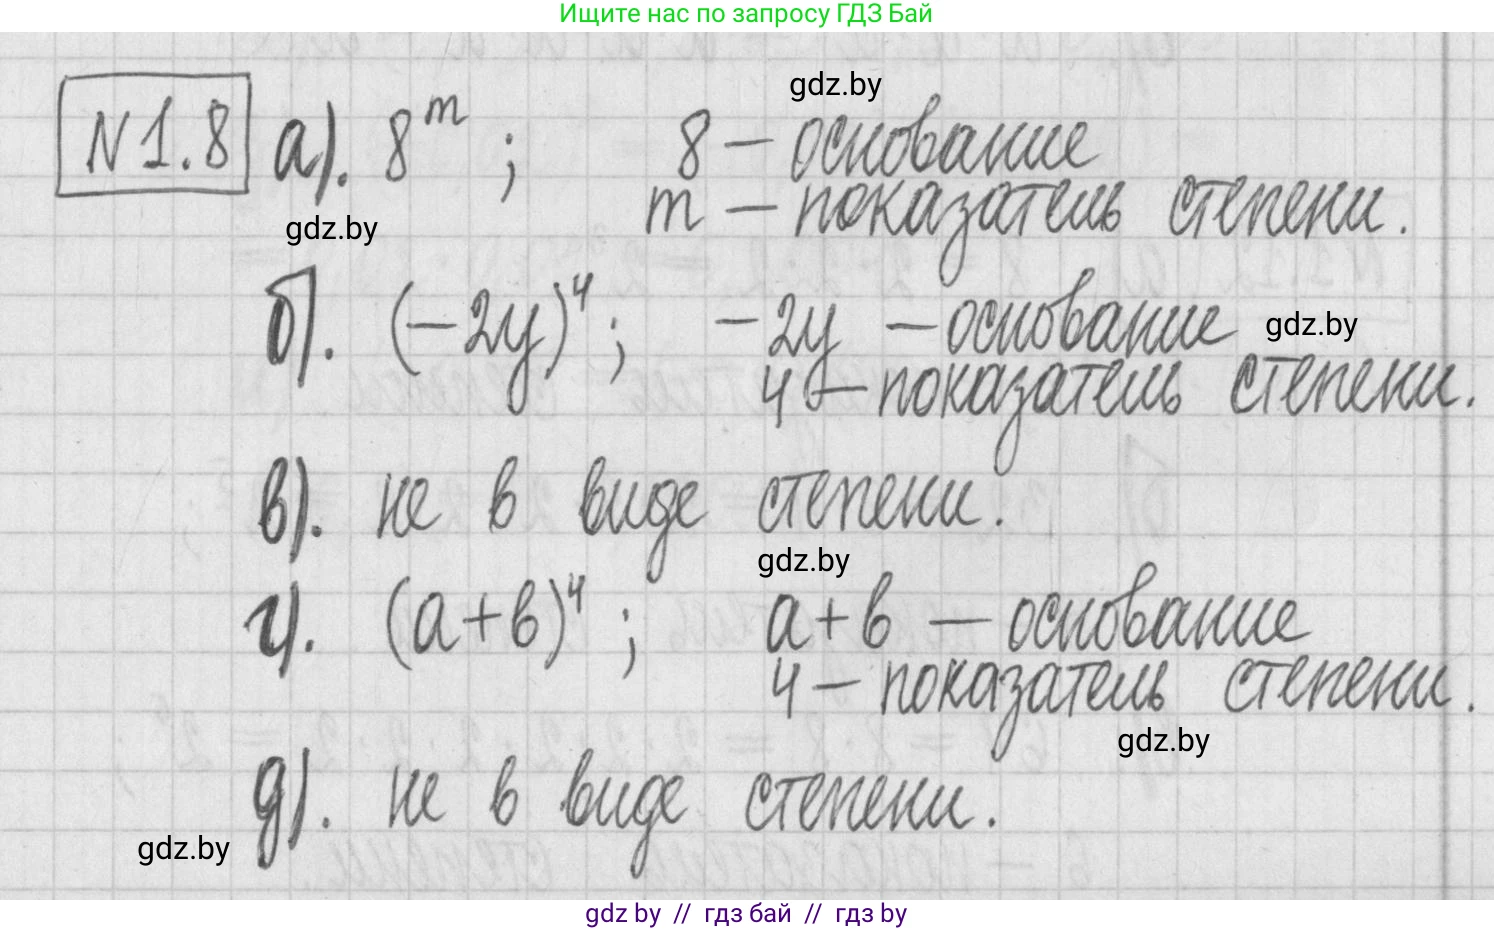 Ищите нас по запросу ГДЗ Бай
gdz.by
N1.8 а). 8^m ; 8 – основание
m – показатель степени.
gdz.by
б). (-2y)^4 ; -2y – основание
gdz.by
4 – показатель степени.
в). не в виде степени.
gdz.by
г). (a+в)^4 ; a+в – основание
4 – показатель степени.
gdz.by
д). не в виде степени.
gdz.by
gdz by // гдз бай // гдз by